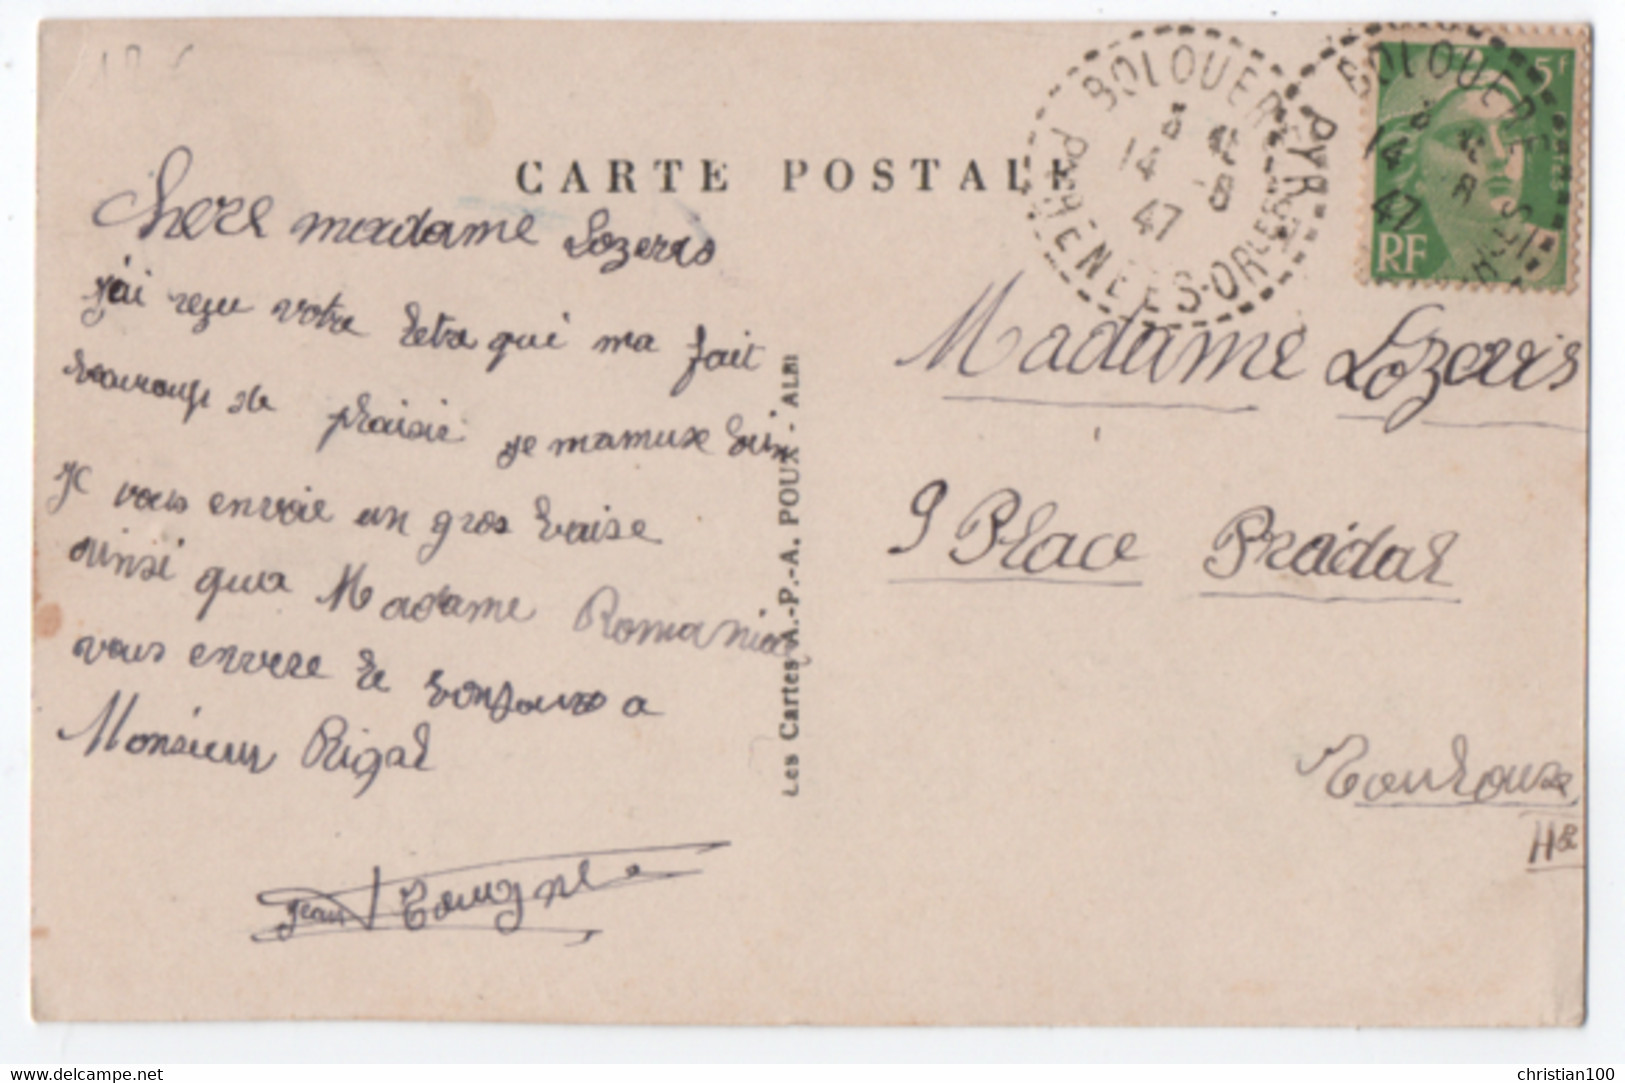 CARTE POSTALE
Chere madame Lozeris
j'ai reçu votre letre qui ma fait
beaucoup de plaisir je mamuse bien
Je vous envoie un gros baise
ainsi que Madame Romanie
vous envere le bonjour a
Monsieur Rigal
Jean Tougne
Les Cartes A.-P.-A. POUX - ALBI
BOLQUERE
14 H
8
47
PYRENEES-ORLES
BOLQUERE
14
8
47
PYR
5f
RF
Madame Lozeris
9 Place Pradal
Toulouse
HG
http://www.delcampe.net
christian100